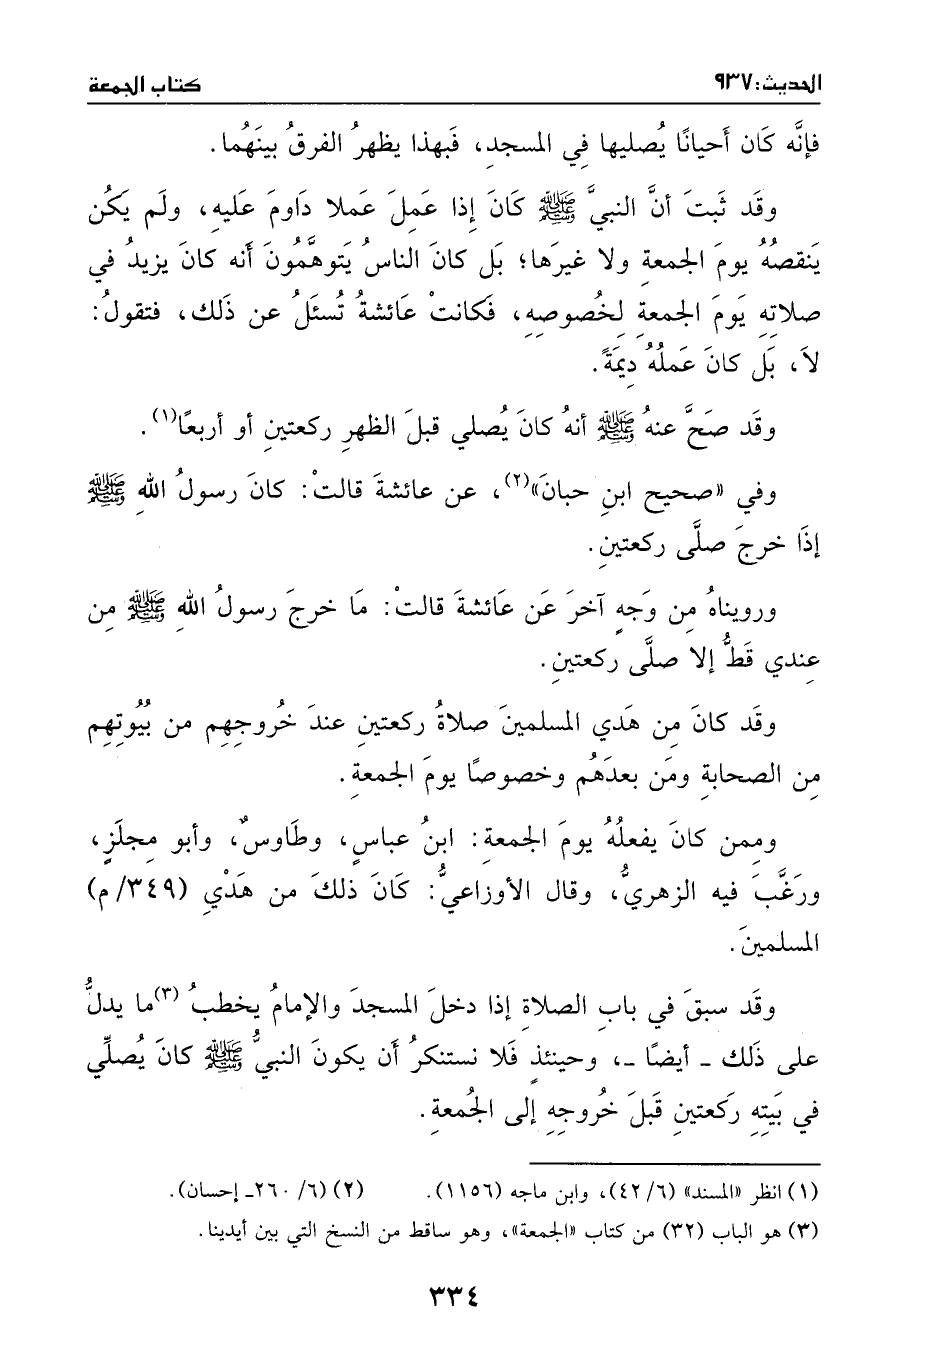 الحديث: ٩٣٧ كتاب الجمعة
فإنَّه كَان أَحيانًا يُصليها فِي المسجدِ، فَبهذا يظهرُ الفرقُ بينَهُما.
وقَد ثَبتَ أنَّ النبيَّ ﷺ كَانَ إِذا عَمِلَ عَملا دَاومَ عَليهِ، ولَم يَكُن
يَنقصُهُ يومَ الجمعةِ ولا غيرَها؛ بَل كانَ الناسُ يَتوهَّمُونَ أَنه كانَ يزيدُ في
صلاتهِ يَومَ الجمعةِ لِخُصوصهِ، فَكانتْ عَائشةُ تُسئَلُ عن ذَلك، فتقولُ:
لاَ، بَل كانَ عَملُهُ دِيمَةً.
وقَد صَحَّ عنهُ ﷺ أنهُ كانَ يُصلي قبلَ الظهرِ ركعتينِ أو أربعًا(١).
وفي «صحيح ابنِ حبانَ»(٢)، عن عائشةَ قالتْ: كانَ رسولُ اللهِ ﷺ
إِذَا خرجَ صلَّى ركعتينِ.
ورويناهُ مِن وَجهٍ آخرَ عَن عَائشةَ قالتْ: مَا خرجَ رسولُ اللهِ ﷺ مِن
عِندي قَطُّ إلا صلَّى ركعتينِ.
وقَد كانَ مِن هَدي المسلمينَ صلاةُ ركعتينِ عندَ خُروجِهِم من بُيُوتِهِم
مِن الصحابةِ ومَن بعدَهُم وخصوصًا يومَ الجمعةِ.
وممن كانَ يفعلُهُ يومَ الجمعةِ: ابنُ عباسٍ، وطَاوسٌ، وأبو مِجلَزٍ،
ورَغَّبَ فيه الزهريُّ، وقال الأوزاعيُّ: كَانَ ذلكَ من هَدْيِ (٣٤٩/م)
المسلمينَ.
وقَد سبقَ في بابِ الصلاةِ إذا دخلَ المسجدَ والإمامُ يخطبُ(٣) ما يدلُّ
على ذَلك - أيضًا -، وحينئذٍ فَلا نستنكرُ أَن يكونَ النبيُّ ﷺ كانَ يُصلِّي
في بَيتِهِ رَكعتينِ قَبلَ خُروجِهِ إلى الجُمعةِ.
(١) انظر «المسند» (٤٢/٦)، وابن ماجه (١١٥٦). (٢) (٦/ ٢٦٠- إحسان).
(٣) هو الباب (٣٢) من كتاب «الجمعة»، وهو ساقط من النسخ التي بين أيدينا.
٣٣٤